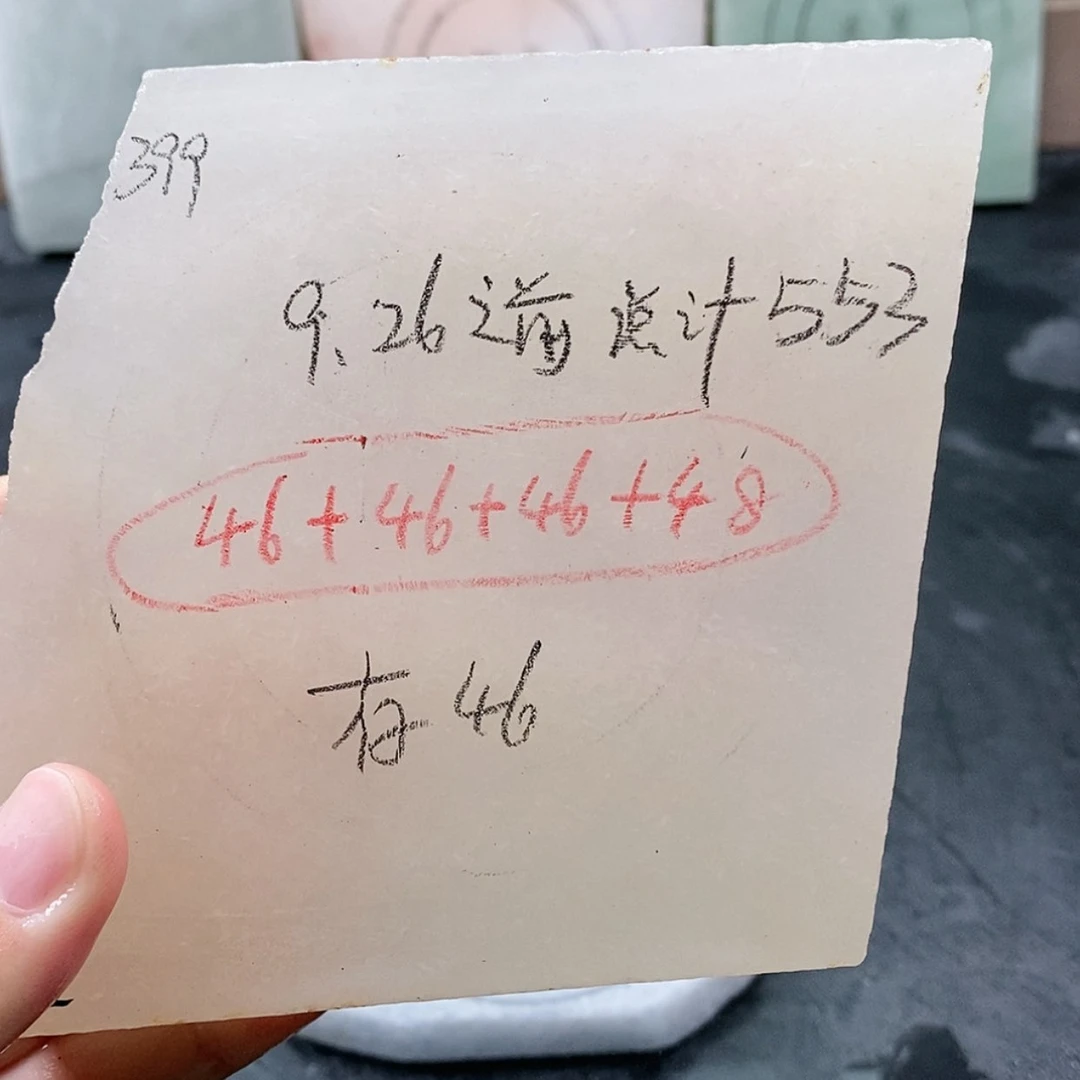 399
9.26之前总计553
46+46+46+48
存46